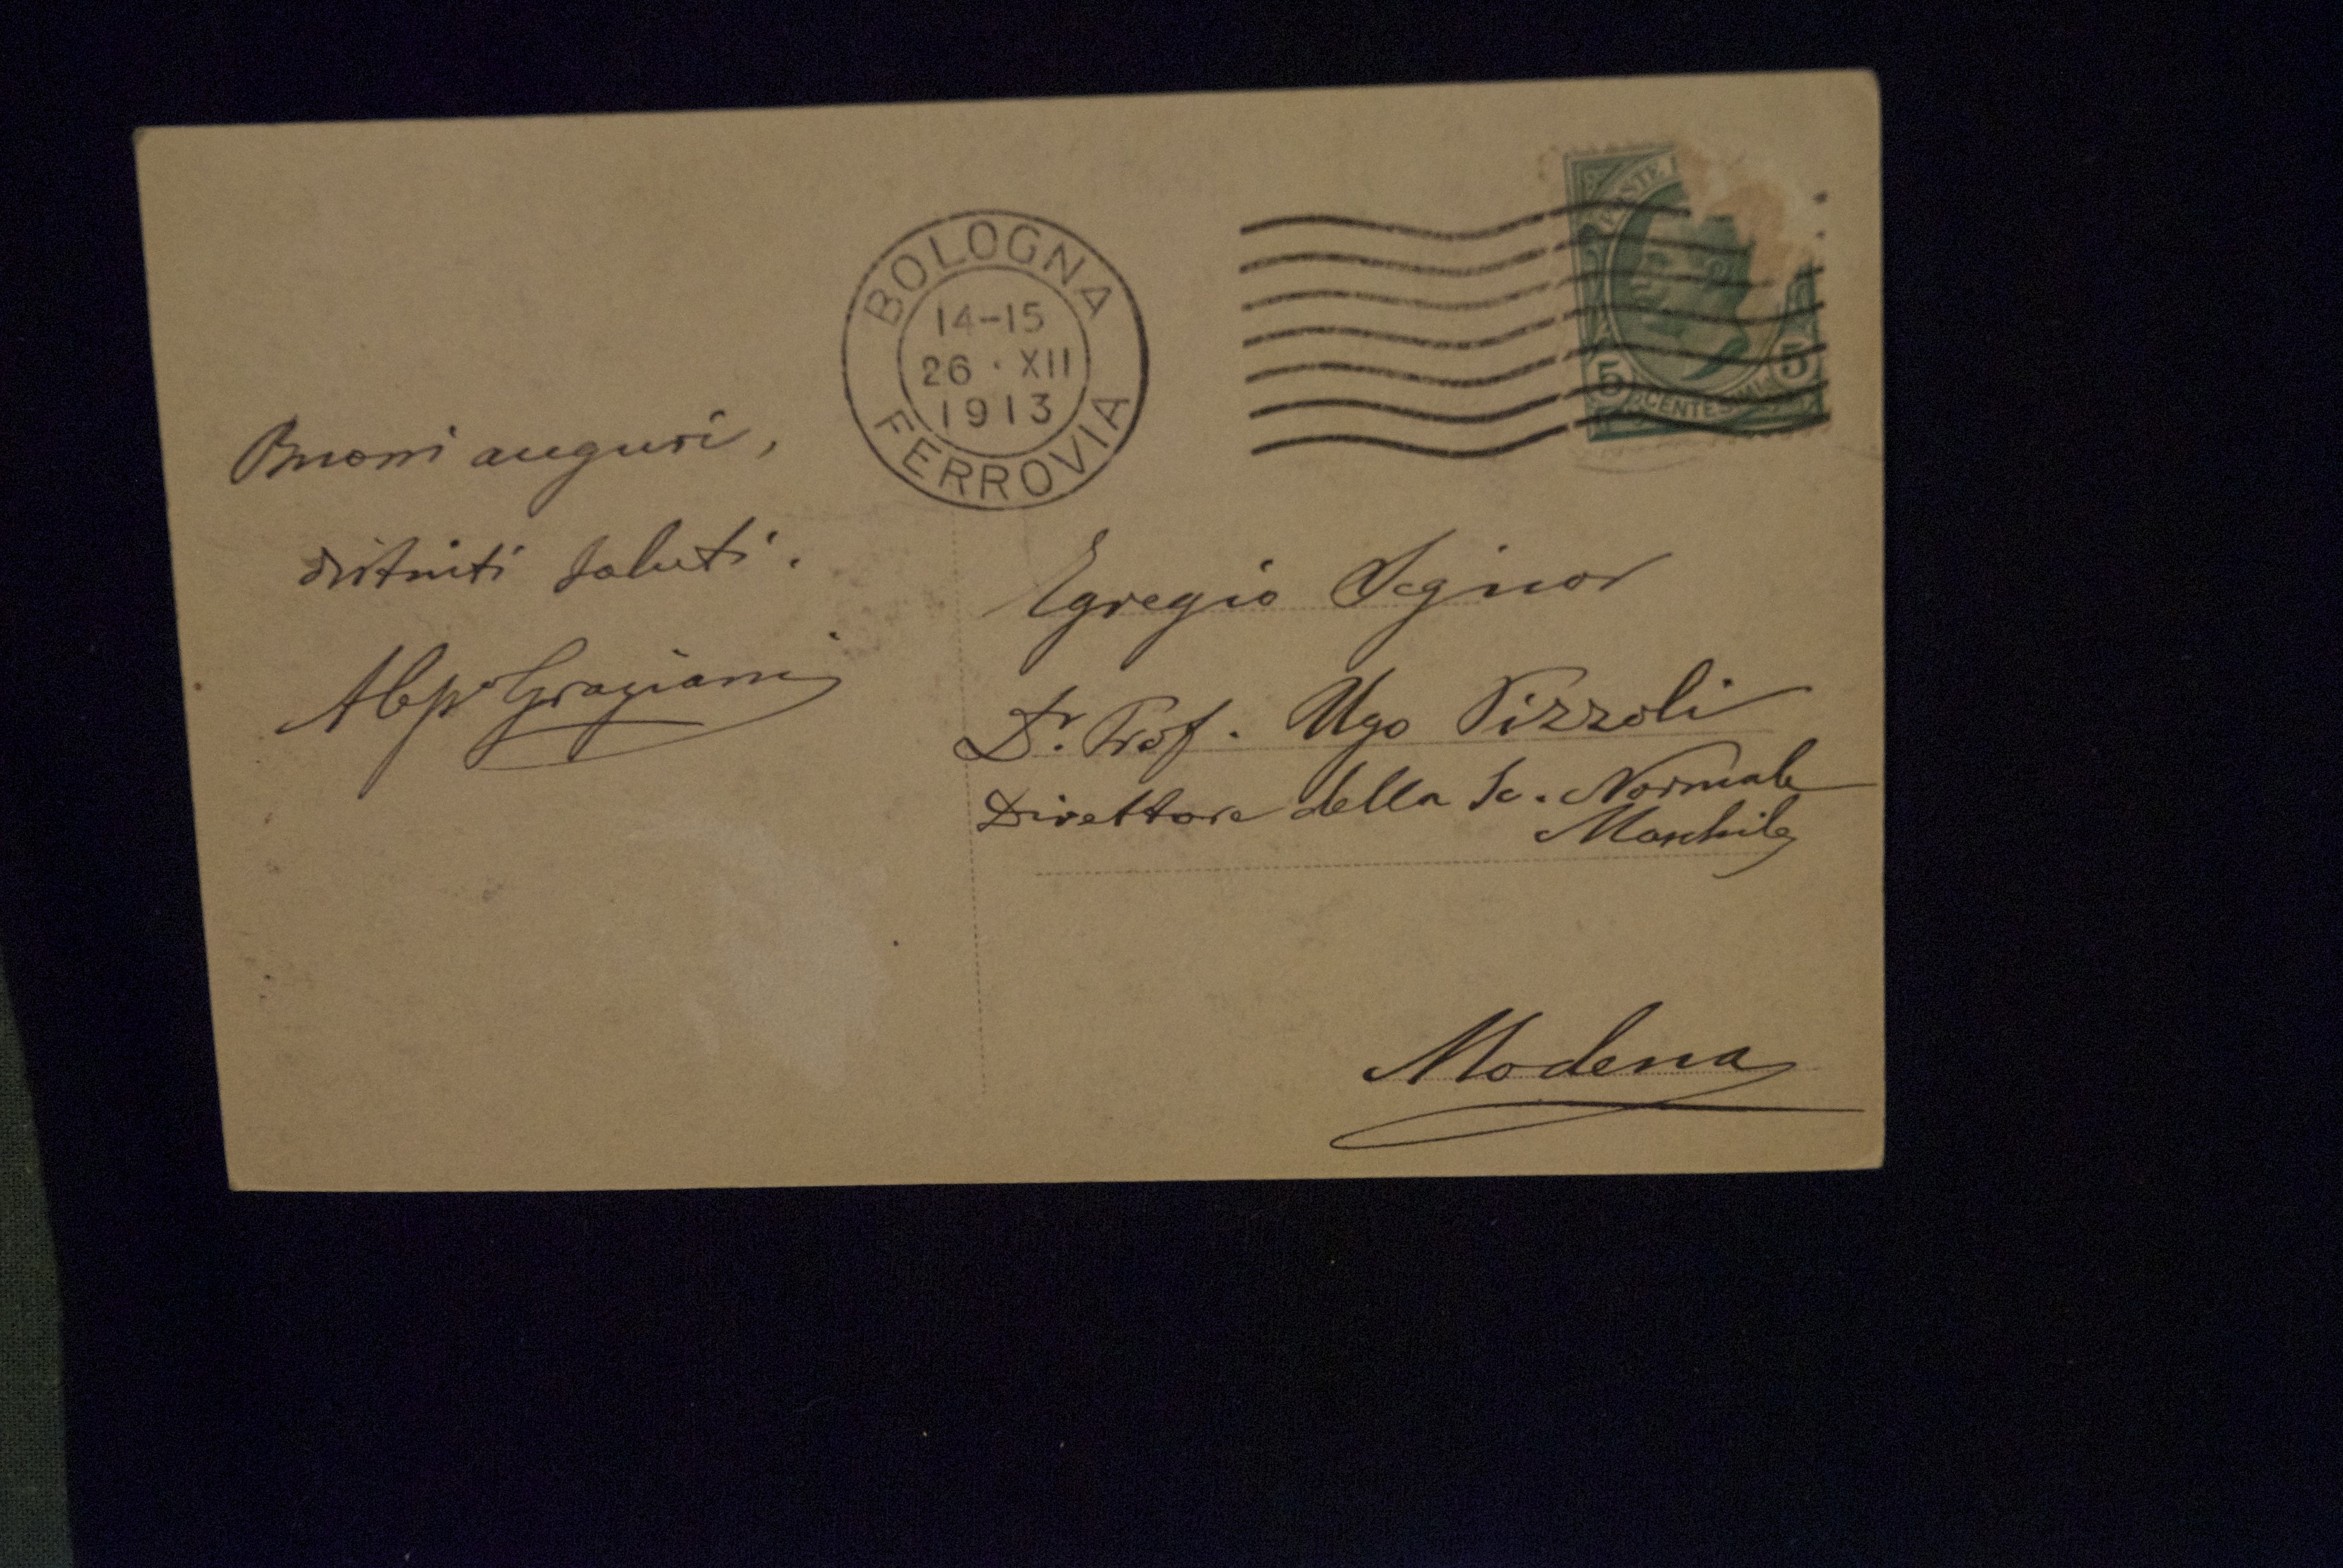 BOLOGNA
14-15
26 · XII
1913
FERROVIA
POSTE
5 CENTESIMI 5
Buoni auguri,
distinti saluti.
Graziani
Egregio Signor
Dr. Prof. Ugo Pizzoli
Direttore della Sc. Normale
Maschile
Modena